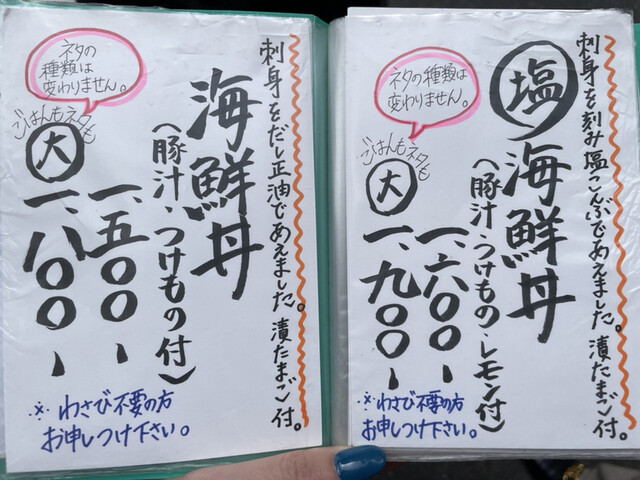 刺身を刻み塩こんぶであえました。漬たまご付。
塩海鮮丼
(豚汁・つけもの・レモン付)
一、六〇〇ー
大 一、九〇〇ー
ごはんもネタも
ネタの種類は
変わりません。
※わさび不要の方
お申しつけ下さい。
刺身をだし正油であえました。漬たまご付。
海鮮丼
(豚汁・つけもの付)
一、五〇〇ー
大 一、八〇〇ー
ごはんもネタも
ネタの
種類は
変わりません。
※わさび不要の方
お申しつけ下さい。